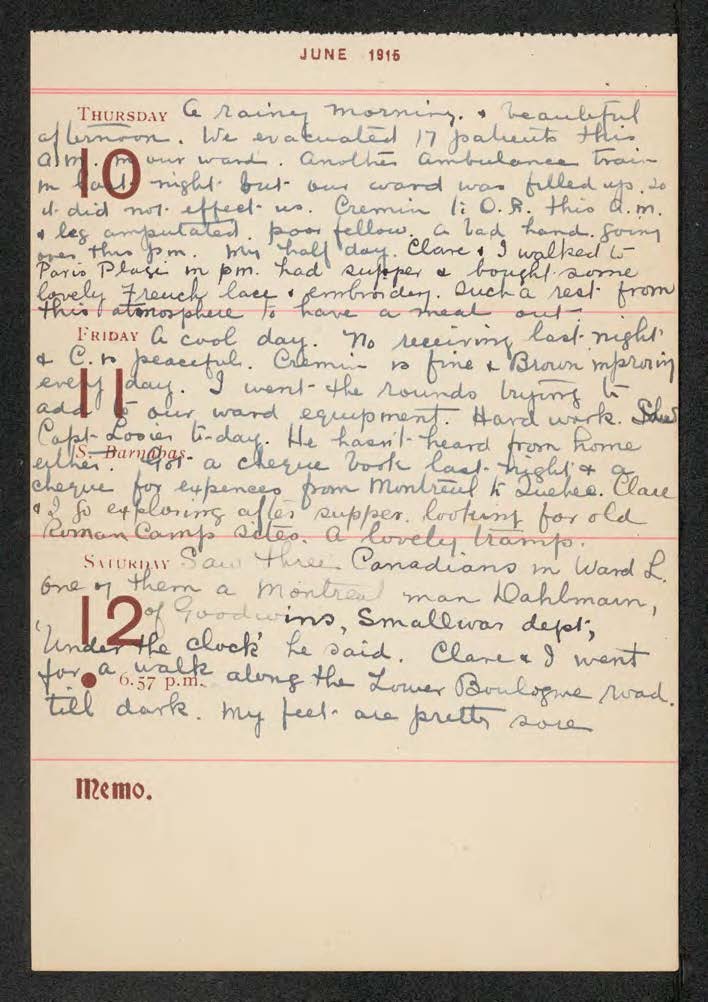 JUNE 1915
THURSDAY A rainy morning. & beautiful
afternoon. We evacuated 17 patients this
a.m. in our ward. Another ambulance train
10
in last night but our ward was filled up, so
it did not effect us. Cremin to O.R. this a.m.
& leg amputated. poor fellow. a bad hand. going
over this p.m. My half day. Clare & I walked to
Paris Plage in pm. had supper & bought some
lovely French lace & embroidery. Such a rest from
this atmosphere to have a meal out
FRIDAY A cool day. No receiving last night
& C. is peaceful. Cremin is fine & Brown improving
every day. I went the rounds trying to
11
add to our ward equipment. Hard work. Saw
Capt Losier to-day. He hasn't heard from home
S. Barnabas.
either. Got a cheque book last night & a
cheque for expences from Montreal to Quebec. Clare
& I go exploring after supper. looking for old
Roman Camp sites. A lovely tramp.
SATURDAY Saw three Canadians in Ward L.
one of them a Montreal man Dahlmann,
12
of Goodwins, Smallwar dept,
'Under the clock' he said. Clare & I went
for a walk along the Lower Boulogne road.
6.57 p.m.
till dark. My feet are pretty sore
Memo.